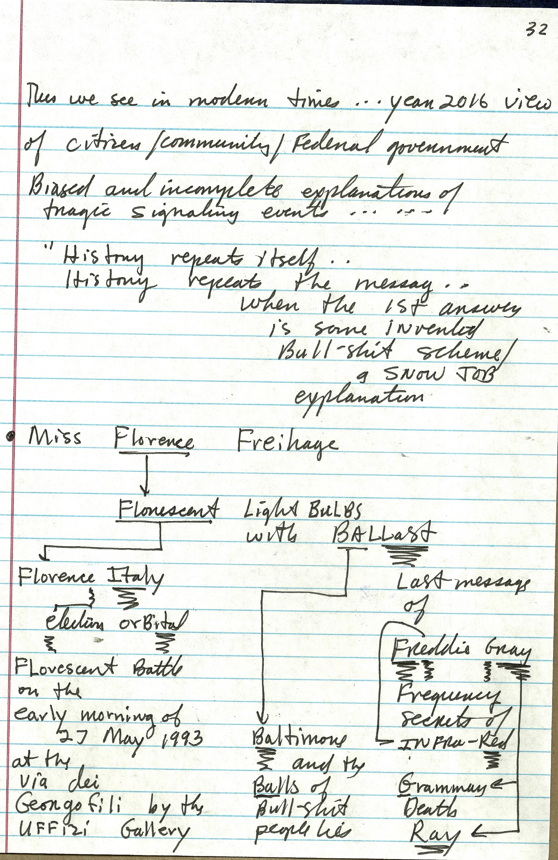 32
Thus we see in modern times ... year 2016 view
of citizen/community/Federal government
Biased and incomplete explanations of
tragic signaling events ... ....
"History repeats itself ..
History repeats the message ..
when the 1st answer
is some invented
Bull-shit scheme/
a SNOW JOB
explanation
• Miss Florence Freihage
Florescent Light BULBS
with BALLast
Florence Italy
Last message
of
election orBital
Freddie Gray
FLorescent Battle
on the
early morning of
27 May 1993
at the
via dei
Georgofili by the
UFFIZI Gallery
Baltimore
and the
Balls of
Bull-shit
people lies
Frequency
secrets of
INFRa-Red
Grammay
Death
Ray